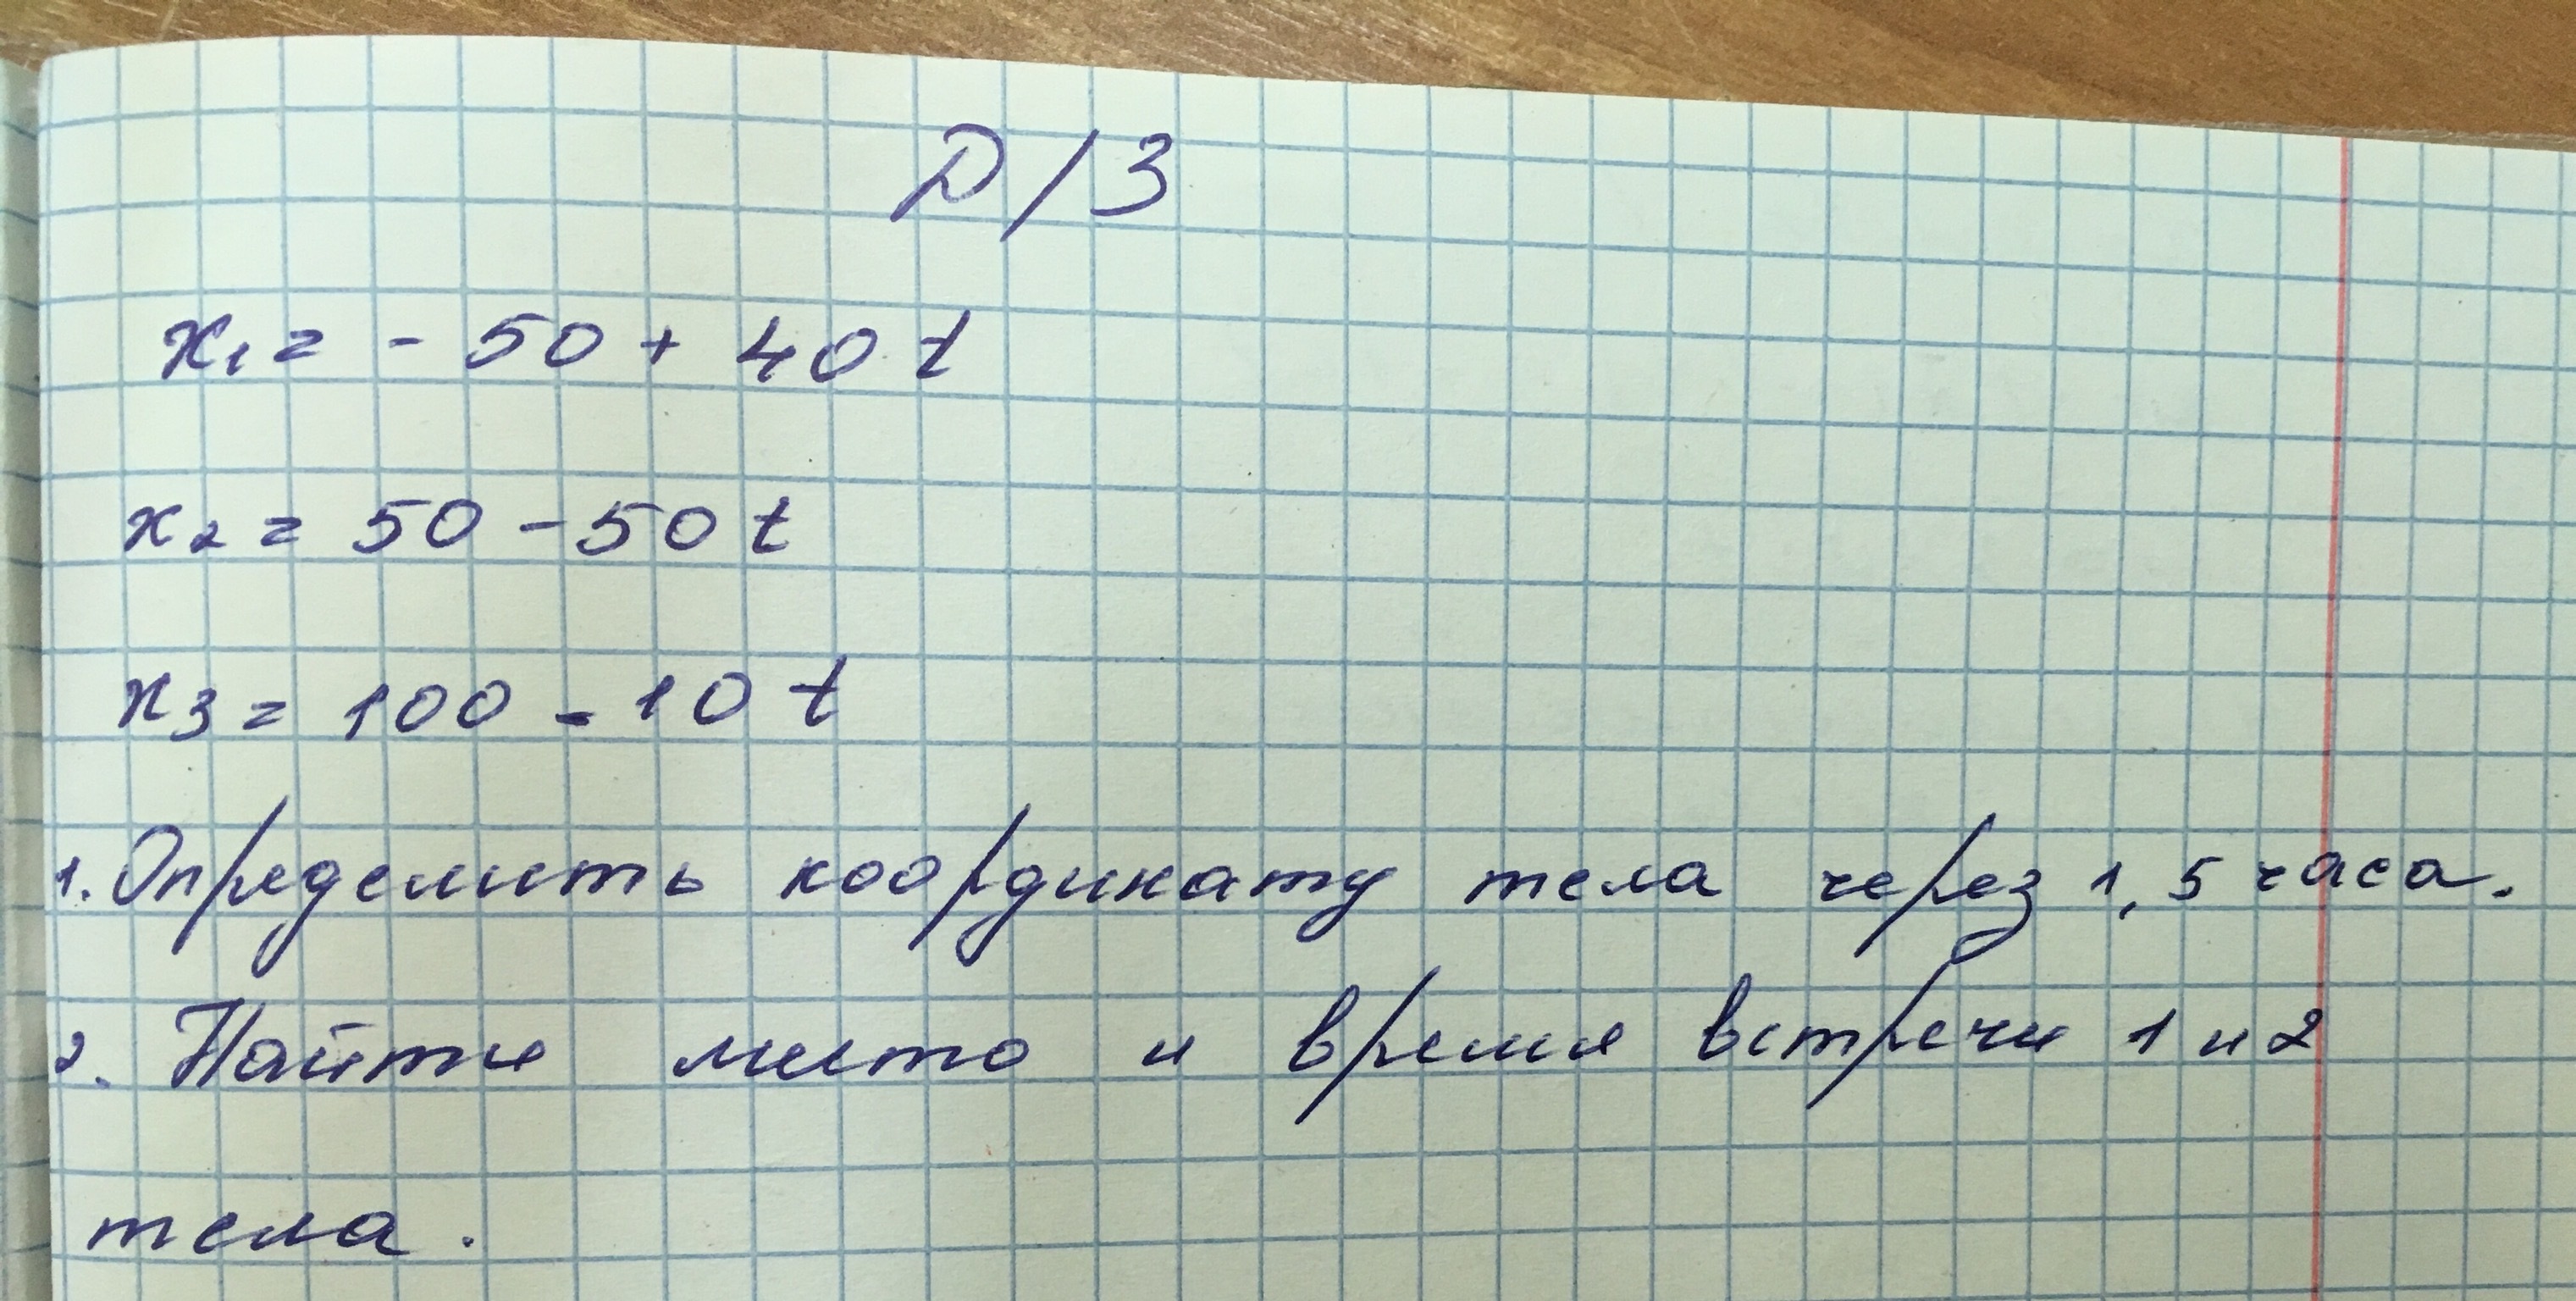 Д/З
x₁ = - 50 + 40 t
x₂ = 50 - 50 t
x₃ = 100 - 10 t
1. Определить координату тела через 1,5 часа.
2. Найти место и время встречи 1 и 2
тела.